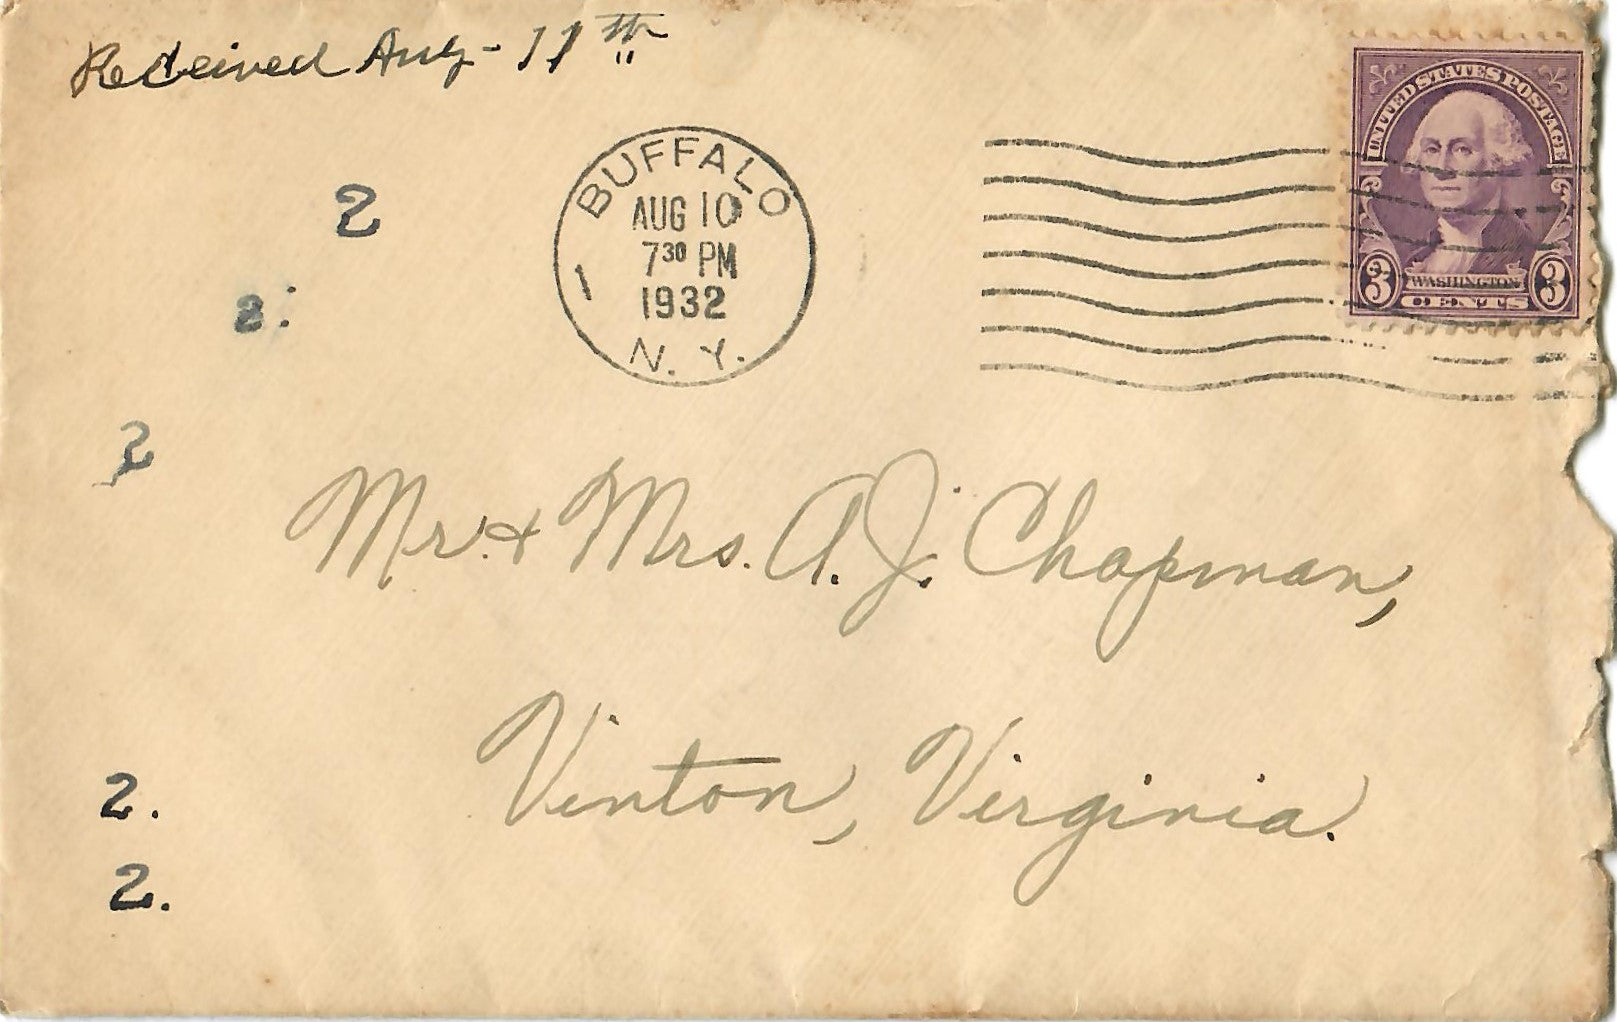 Received Aug - 11th
UNITED STATES POSTAGE
WASHINGTON
3 CENTS 3
BUFFALO
AUG 10
7 30 PM
1932
1
N. Y.
2
2:
2
Mr. & Mrs. A. J. Chapman,
Vinton, Virginia.
2.
2.